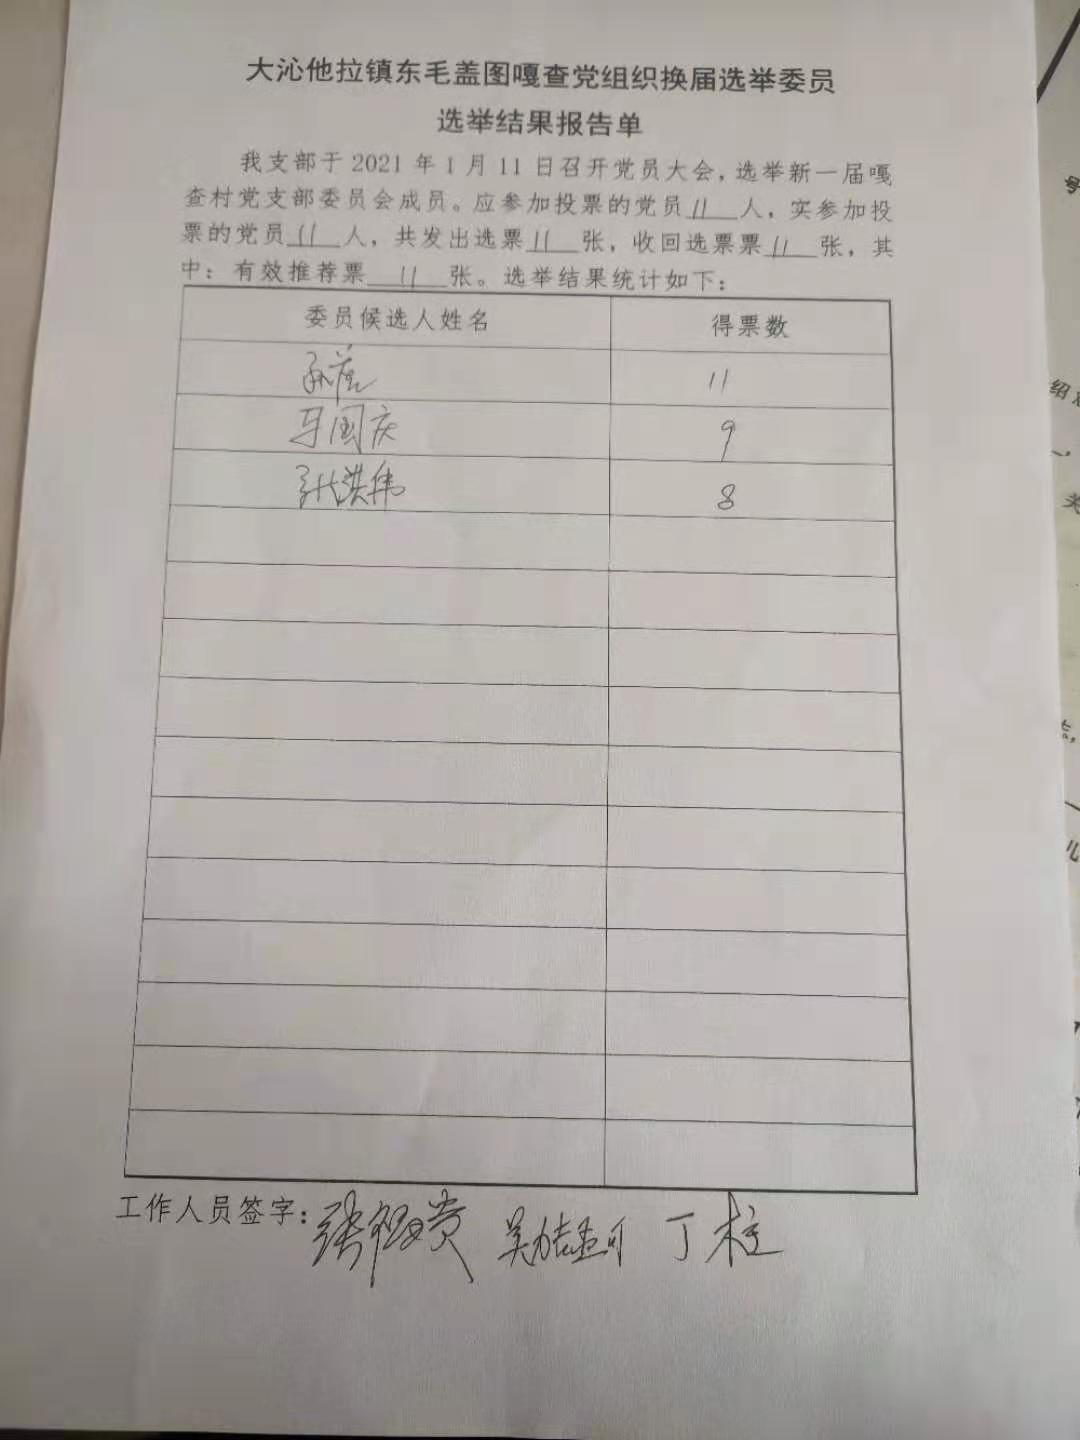 大沁他拉镇东毛盖图嘎查党组织换届选举委员
选举结果报告单
我支部于 2021 年 1 月 11 日召开党员大会，选举新一届嘎
查村党支部委员会成员。应参加投票的党员 11 人，实参加投
票的党员 11 人，共发出选票 11 张，收回选票票 11 张，其
中：有效推荐票 11 张。选举结果统计如下：
委员候选人姓名 得票数
11
马国庆 9
张洪伟 8
工作人员签字： 丁柱
号
关